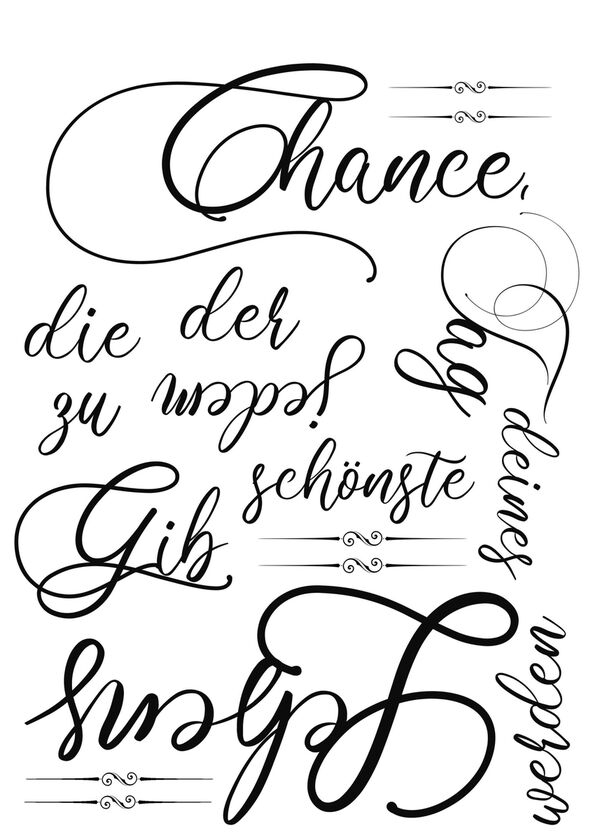 Chance,
die
der
Tag
zu
jedem
deines
schönste
Gib
Lebens
werden